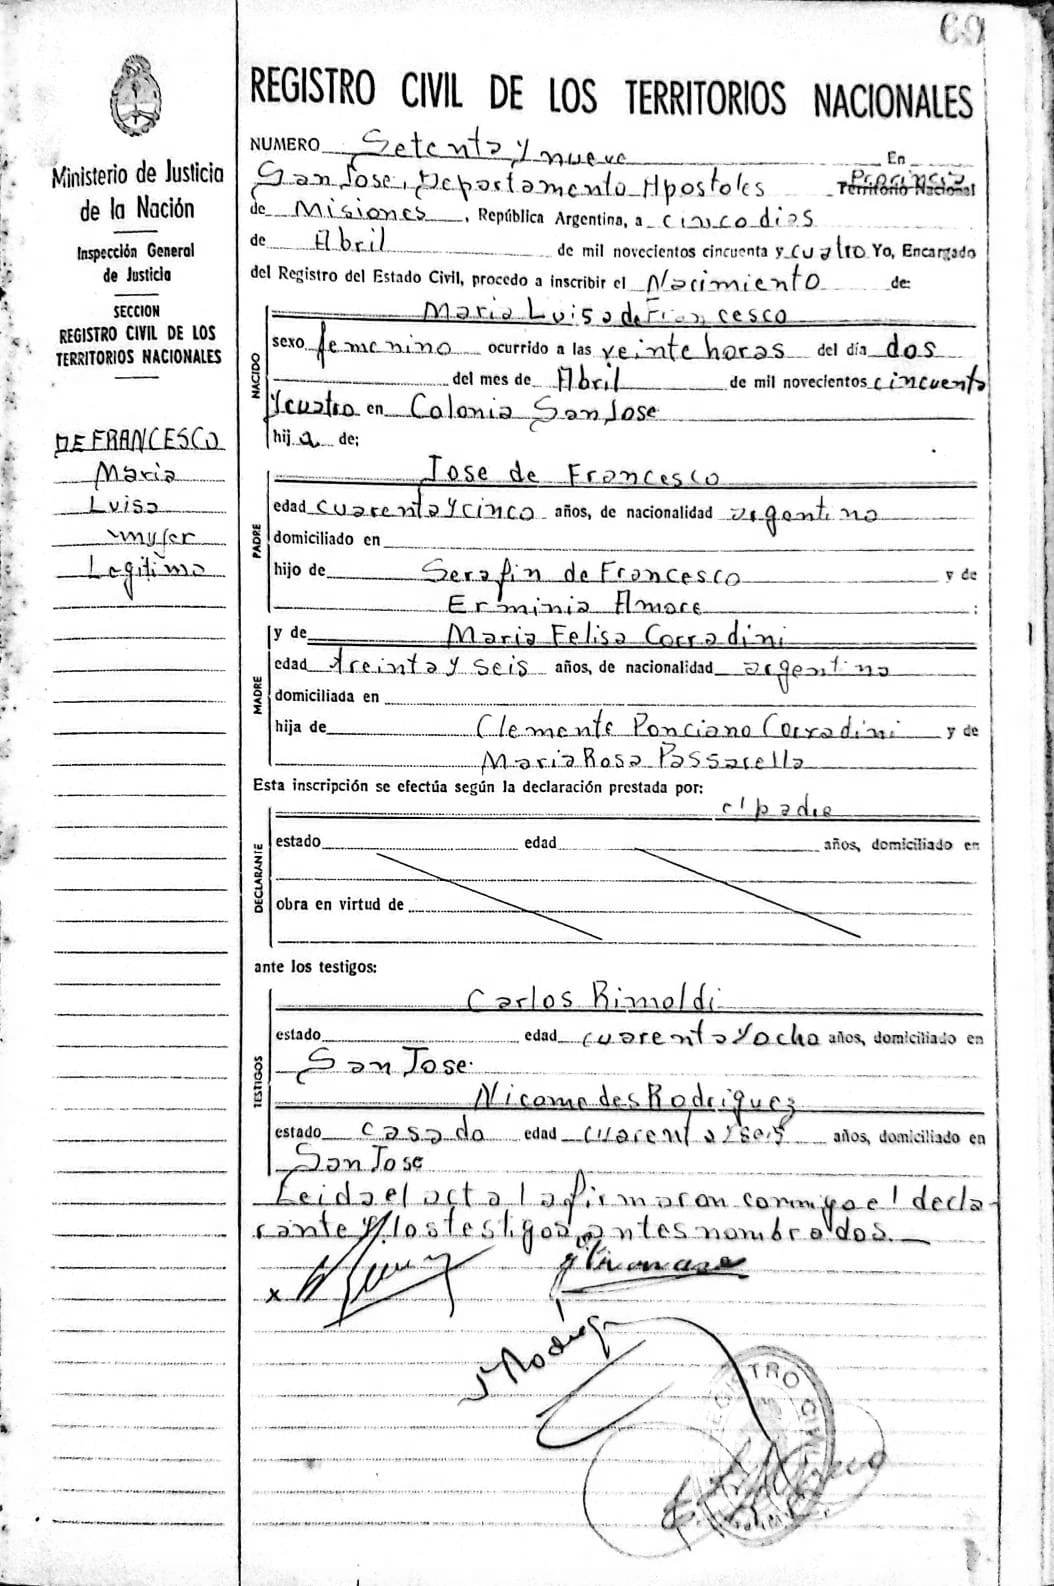 69
REGISTRO CIVIL DE LOS TERRITORIOS NACIONALES
Ministerio de Justicia
de la Nación
Inspección General
de Justicia
SECCION
REGISTRO CIVIL DE LOS
TERRITORIOS NACIONALES
DE FRANCESCO
Maria
Luisa
mujer
Legitima
NUMERO Setenta y nueve En
San Jose, Departamento Apostoles Provincia Territorio Nacional
de Misiones, República Argentina, a cinco dias
de Abril de mil novecientos cincuenta y cuatro Yo, Encargado
del Registro del Estado Civil, procedo a inscribir el Nacimiento de:
NACIDO
Maria Luisa de Francesco
sexo femenino ocurrido a las veinte horas del día dos
del mes de Abril de mil novecientos cincuenta
y cuatro en Colonia San Jose
hija de;
PADRE
Jose de Francesco
edad cuarenta y cinco años, de nacionalidad argentina
domiciliado en
hijo de Serafin de Francesco y de
Erminia Amore :
MADRE
y de Maria Felisa Corradini
edad treinta y seis años, de nacionalidad argentina
domiciliada en
hija de Clemente Ponciano Corradini y de
Maria Rosa Passarella
Esta inscripción se efectúa según la declaración prestada por:
DECLARANTE
el padre
estado edad años, domiciliado en
obra en virtud de
ante los testigos:
TESTIGOS
Carlos Rimoldi
estado edad cuarenta y ocho años, domiciliado en
San Jose.
Nicomedes Rodriguez
estado casado edad cuarenta y seis años, domiciliado en
San Jose
Leida el acta la firmaron conmigo el decla-
rante y los testigos antes nombrados.
x
Rodrig
REGISTRO CIVIL